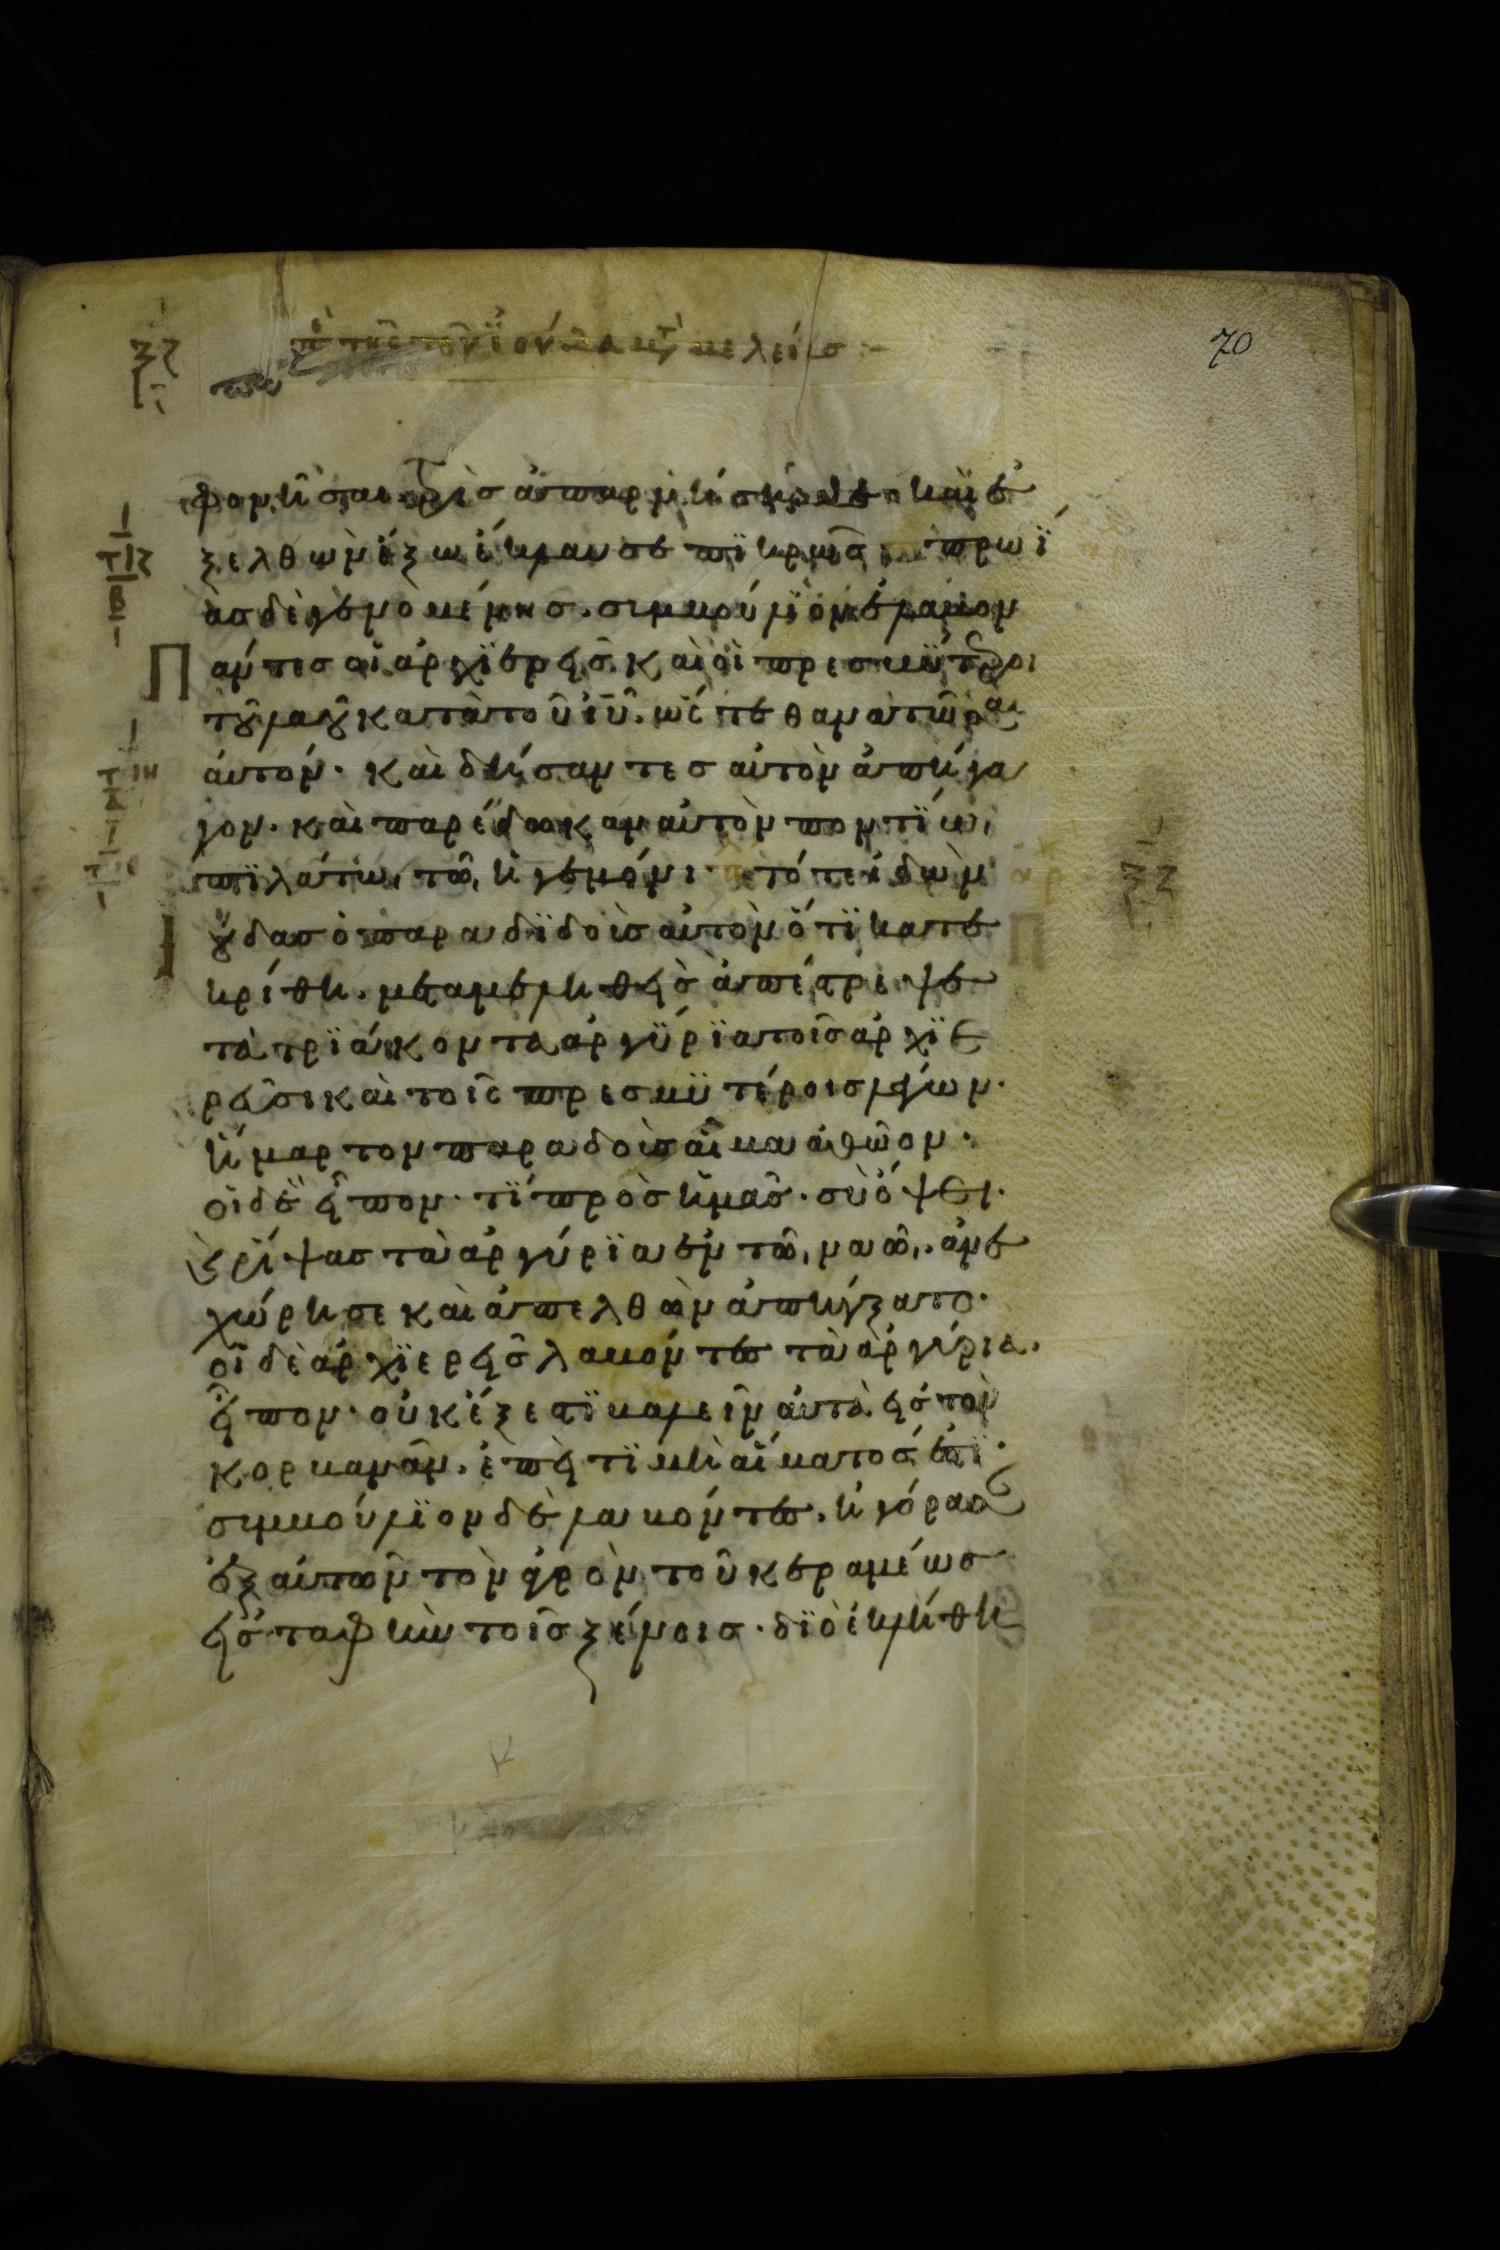 70
φονῆσαι τρὶς ἀπαρνήση με· καὶ ἐ
ξελθὼν ἔξω ἔκλαυσε πϊκρῶς πρωΐ
ας δὲ γενομένης. συμβούλϊον ἔλαβον
Πάντες οἱ ἀρχϊερεῖς καὶ οἱ πρεσβϋτεροι
τοῦ λαοῦ κατὰ τοῦ ἰῦ. ὥστε θανατῶσαι
ἀυτόν· καὶ δήσαντες αὐτὸν ἀπήγα
γον. καὶ παρέδωκαν αὐτὸν ποντΐω
πϊλάτω, τῶ, ἡγεμόνι· τότε ἰδὼν
Ἰούδας ὁ παραδϊδοὶς αὐτὸν ὅτϊ κατε
κρίθη. μεταμεληθεὶς ἀπέστρεψε
τὰ τρϊάκοντα ἀργϋρϊα τοῖς ἀρχϊε
ρεῦσι καὶ τοῖς πρεσβϋτέροις λέγων.
ἥμαρτον παραδοὶς αἷμα ἀθῶον.
οἱ δὲ εἶπον. τΐ πρὸς ἡμᾶς. σὺ ὄψει.
ὲ ρΐψας τὰ ἀργύρϊα ἐν τῶ, ναῶ,. ἀνε
χώρησε καὶ ἀπελθὼν ἀπήγξατο.
οἱ δὲ ἀρχϊερεῖς λαβόντες τὰ ἀργύρια.
εἶπον. οὐκ ἔξεστϊ βαλεῖν ἀυτὰ εἰς τὸν
κορβανᾶν. ἐπεὶ τϊμὴ αἵματος ἐστϊ·
συμβούλϊον δὲ λαβόντες. ἠγόρασ
ἐξ ἀυτῶν τὸν ἀγρὸν τοῦ κεραμέως
εἰς ταφὴν τοῖς ξένοις. δϊὸ ἐκλήθη